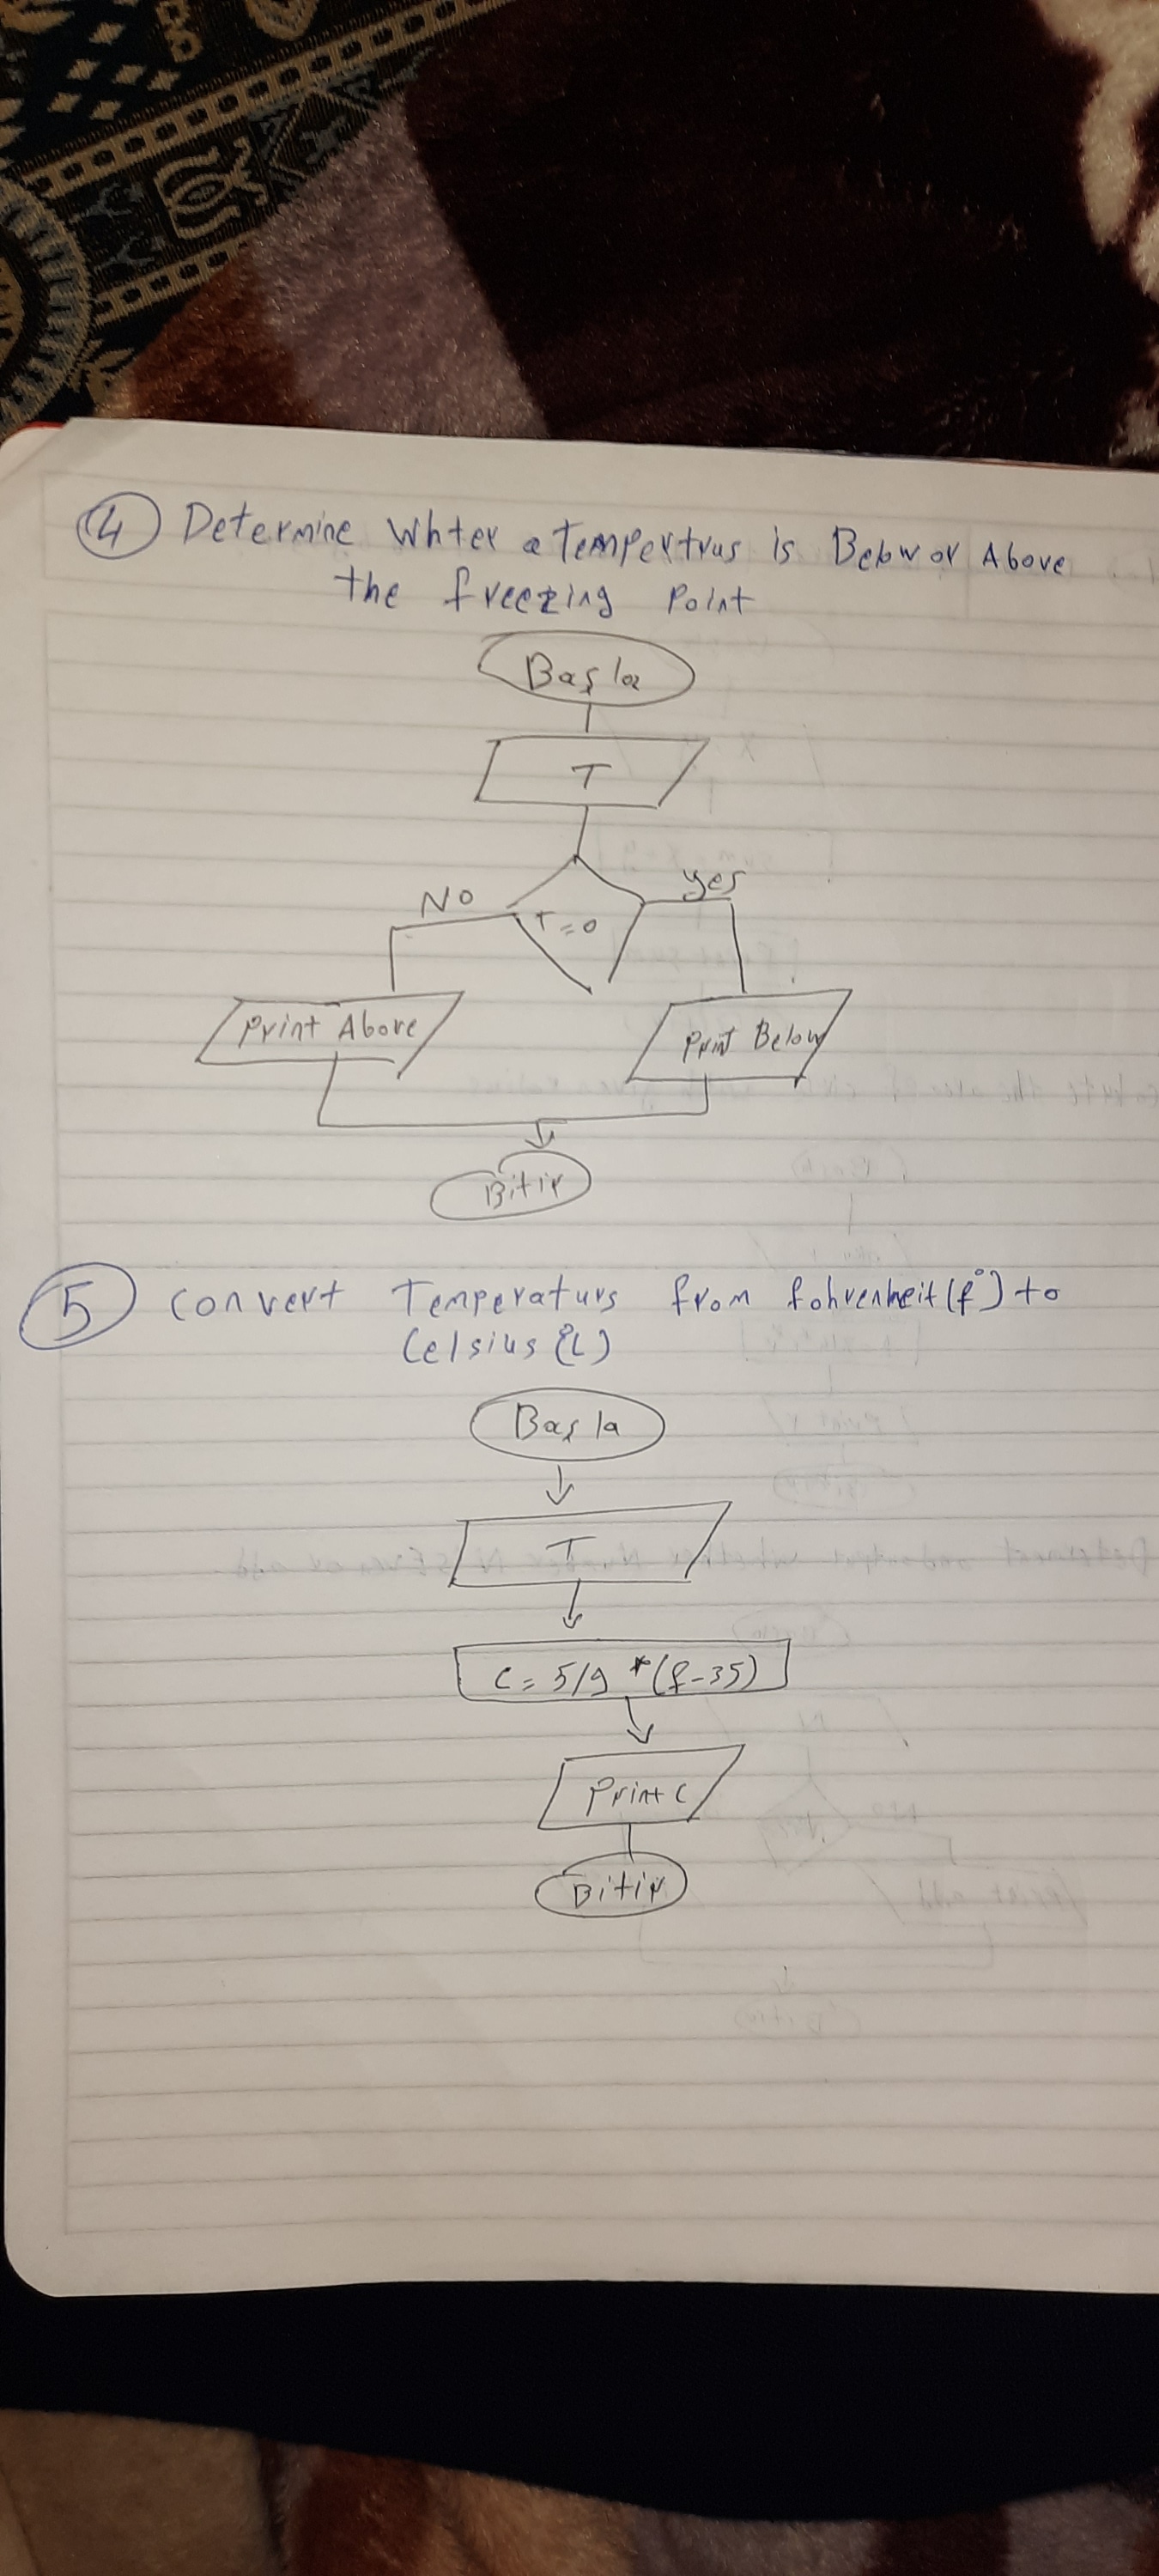 4 Determine Whter a Tempertrus is Below or Above
the freezing Point
Başla
T
No
yes
T=0
Print Above
Print Below
Bitir
5 Convert Temperaturs from fohrenheit (f°) to
Celsius (°C)
Başla
T
C = 5/9 * (f-35)
Print C
Bitir